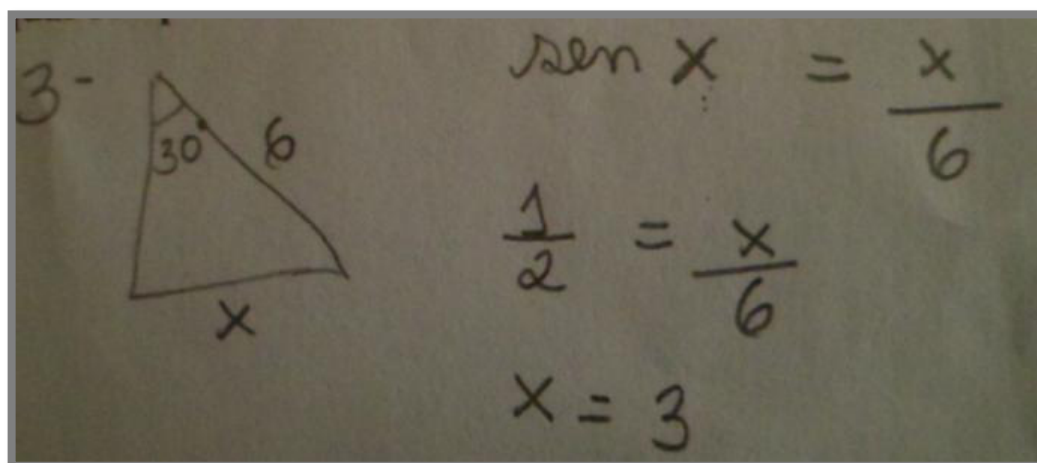 3-
30° 6
x
sen x = x/6
1/2 = x/6
x = 3